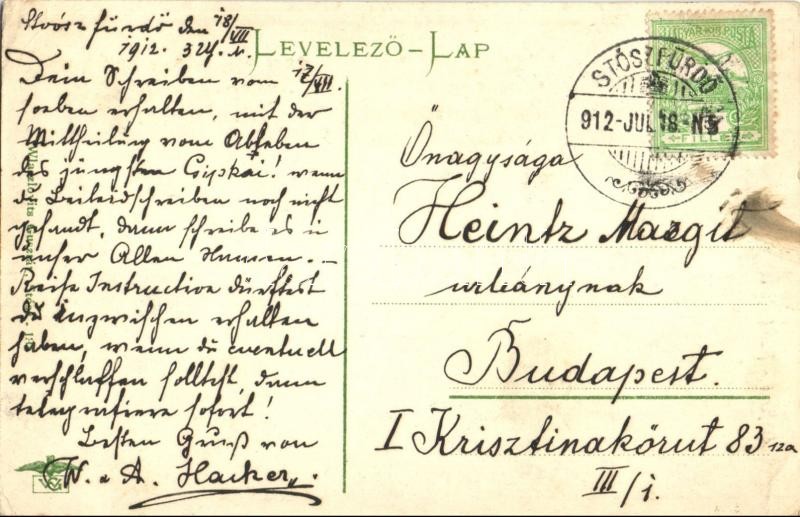 Stoósz fürdő den 18/VII
1912. 3 Uh. N.
Dein Schreiben vom 17/VII.
soeben erhalten, mit der
Mittheilung vom Ableben
des jüngsten Gipkai! wenn
du Beileidschreiben noch nicht
gesandt, dann schreibe es in
unser Allen Namen. –
Reise Instruction dürftest
du inzwischen erhalten
haben, wenn du eventuell
verschlaffen solltest, dann
telegrafiere sofort!
Besten Gruß von
W. u A. Hacker
LEVELEZŐ-LAP
MAGYAR KIR. POSTA
FILLÉR
STÓSZFÜRDŐ
912-JUL.18-N3
Őnagysága
Heintz Margit
urleánynak
Budapest.
I Krisztinakörut 83 sza
III/1.